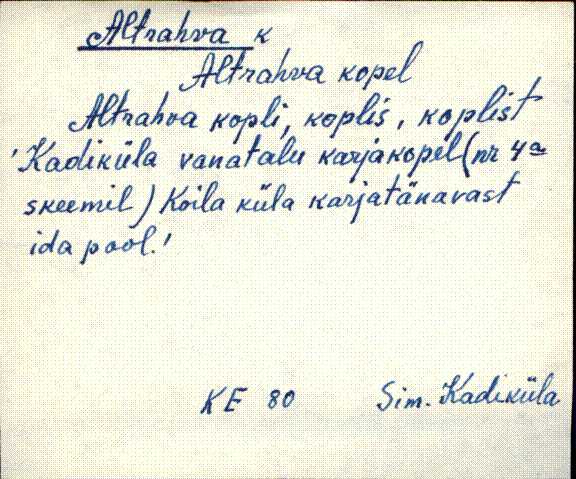 Altrahva k
Altrahva kopel
Altrahva kopli, koplis, koplist
'Kadiküla vanatalu karjakopel (nr 4a
skeemil) Koila küla karjatänavast
ida pool.'
KE 80 Sim. Kadiküla